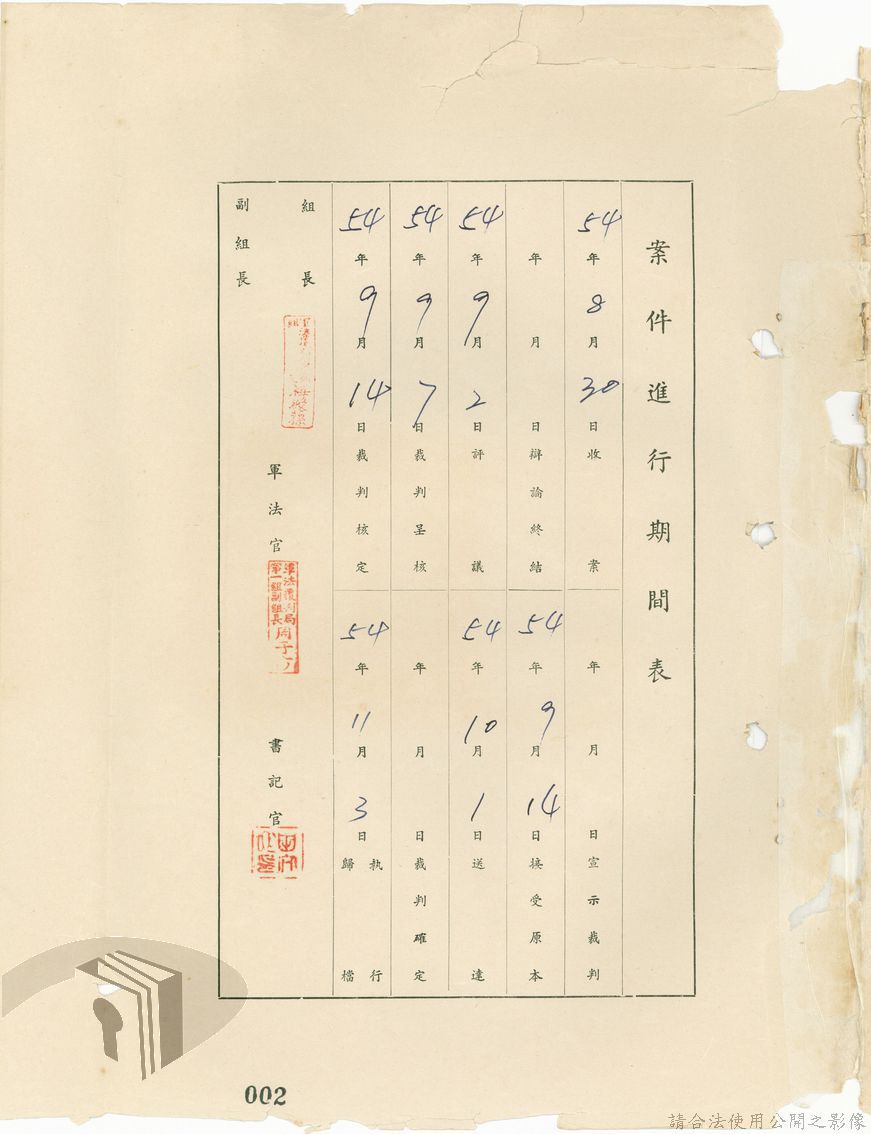 案件進行期間表
54年8月30日收案
年月日宣示裁判
年月日辯論終結
54年9月14日接受原本
54年9月2日評議
54年10月1日送達
54年9月7日裁判呈核
年月日裁判確定
54年9月14日裁判核定
54年11月3日執行歸檔
組長
副組長
軍法官
軍法覆判局
第一組副組長
周
書記官
002
請合法使用公開之影像